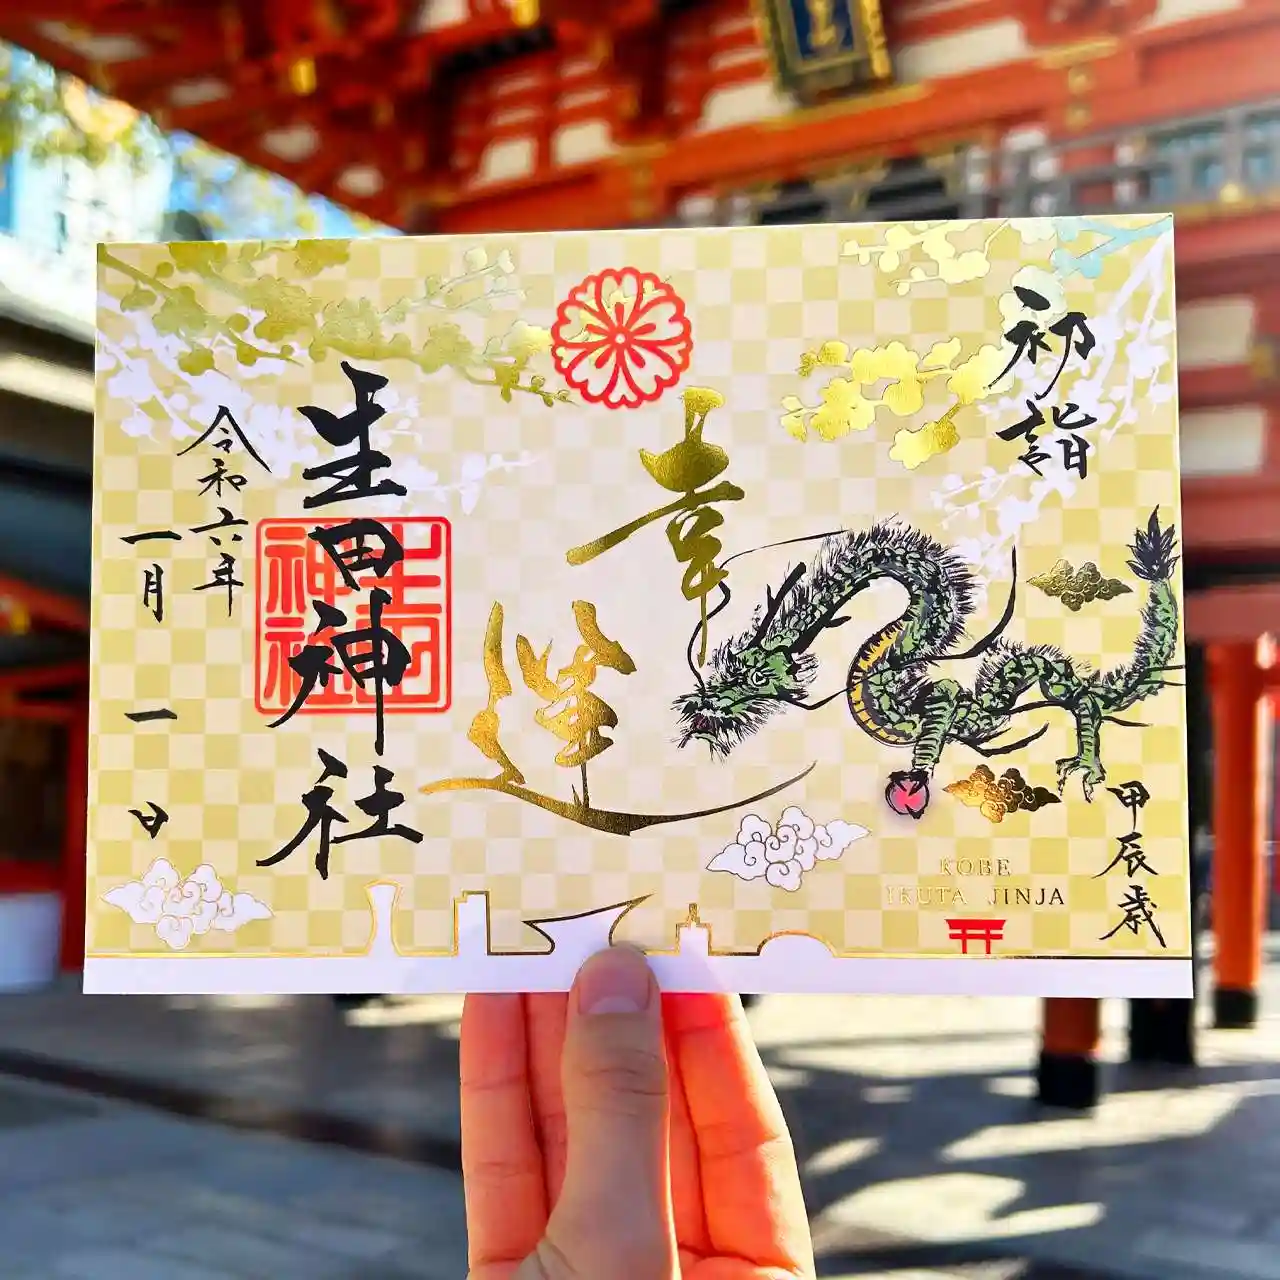 初詣
甲辰歳
幸運
生田神社
生田神社
令和六年
一月一日
KOBE
IKUTA JINJA